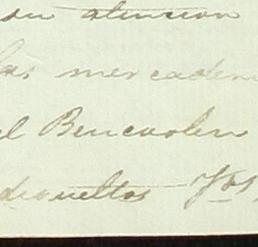 su atencion
las mercaden
el Bencoolen
devueltos